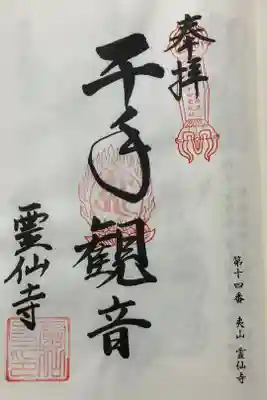 奉拝
千手観音
霊仙寺
第十四番 夷山 霊仙寺